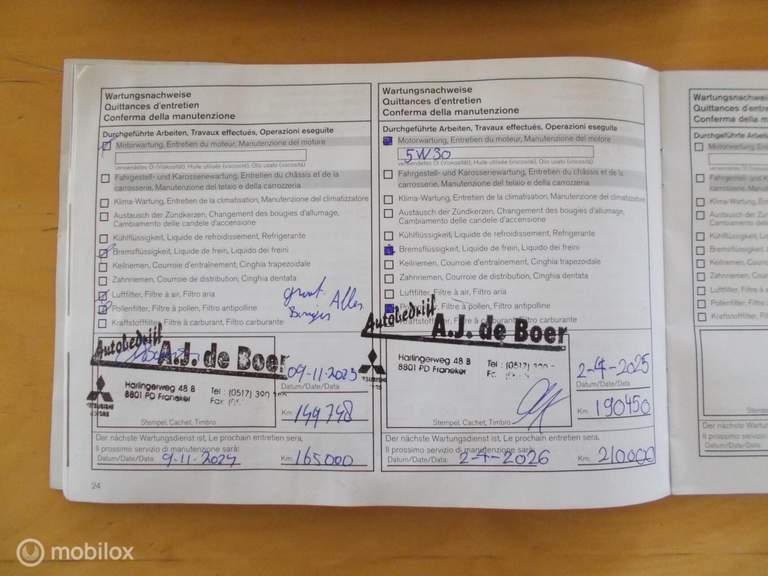 Wartungsnachweise
Quittances d'entretien
Conferma della manutenzione
Durchgeführte Arbeiten, Travaux effectués, Operazioni eseguite
Motorwartung, Entretien du moteur, Manutenzione del motore
verwendetes Öl (Viskosität), Huile utilisée (viscosité), Olio usato (viscosità)
Fahrgestell- und Karosseriewartung, Entretien du châssis et de la
carrosserie, Manutenzione del telaio e della carrozzeria
Klima-Wartung, Entretien de la climatisation, Manutenzione del climatizzatore
Austausch der Zündkerzen, Changement des bougies d'allumage,
Cambiamento delle candele d'accensione
Kühlflüssigkeit, Liquide de refroidissement, Refrigerante
Bremsflüssigkeit, Liquide de frein, Liquido dei freini
Keilriemen, Courroie d'entraînement, Cinghia trapezoidale
Zahnriemen, Courroie de distribution, Cinghia dentata
Luftfilter, Filtre à air, Filtro aria
Pollenfilter, Filtre à pollen, Filtro antipolline
Kraftstofffilter, Filtre à carburant, Filtro carburante
Autobedrijf
A.J. de Boer
Harlingerweg 48 B
8801 PD Franeker
Tel : (0517) 390
Fax
MITSUBISHI
MOTORS
09-11-2023
Datum/Date/Data
Km. 149798
Stempel, Cachet, Timbro
Der nächste Wartungsdienst ist, Le prochain entretien sera,
Il prossimo servizio di manutenzione sarà:
Datum/Date/Data: 9-11-2024 Km. 165000
24
Wartungsnachweise
Quittances d'entretien
Conferma della manutenzione
Durchgeführte Arbeiten, Travaux effectués, Operazioni eseguite
Motorwartung, Entretien du moteur, Manutenzione del motore
5W30
verwendetes Öl (Viskosität), Huile utilisée (viscosité), Olio usato (viscosità)
Fahrgestell- und Karosseriewartung, Entretien du châssis et de la
carrosserie, Manutenzione del telaio e della carrozzeria
Klima-Wartung, Entretien de la climatisation, Manutenzione del climatizzatore
Austausch der Zündkerzen, Changement des bougies d'allumage,
Cambiamento delle candele d'accensione
Kühlflüssigkeit, Liquide de refroidissement, Refrigerante
Bremsflüssigkeit, Liquide de frein, Liquido dei freini
Keilriemen, Courroie d'entraînement, Cinghia trapezoidale
Zahnriemen, Courroie de distribution, Cinghia dentata
Luftfilter, Filtre à air, Filtro aria
Filtre à pollen, Filtro antipolline
Filtre à carburant, Filtro carburante
Autobedrijf
A.J. de Boer
Harlingerweg 48 B
8801 PD Franeker
Tel : (0517) 390
2-4-2025
Datum/Date/Data
Km. 190450
Stempel, Cachet, Timbro
Der nächste Wartungsdienst ist, Le prochain entretien sera,
Il prossimo servizio di manutenzione sarà:
Datum/Date/Data: 2-4-2026 Km. 210.000
Wartungsnachweis
Quittances d'entre
Conferma della m
Durchgeführte Arbeiten, T
Motorwartung, Entret
Fahrgestell- und Karo
carrosserie, Manuten
Klima-Wartung, Entre
Austausch der Zünd
Cambiamento delle
Kühlflüssigkeit, Liqui
Bremsflüssigkeit, Li
Keilriemen, Courroie
Zahnriemen, Courro
Luftfilter, Filtre à air,
Pollenfilter, Filtre à
Kraftstofffilter, Filtre
Der nächste Wartungs
Il prossimo servizio d
Datum/Date/Data:
mobilox